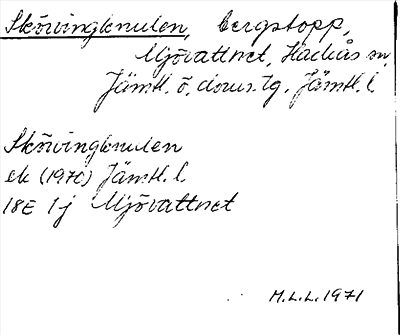 Skörvingknulen, bergstopp,
Mjövattnet, Hackås sn,
Jämtl. ö. doms. tg. Jämtl. l.
Skörvingknulen
ek (1970) Jämtl. l.
18E 1j Mjövattnet
M.L.L. 1971